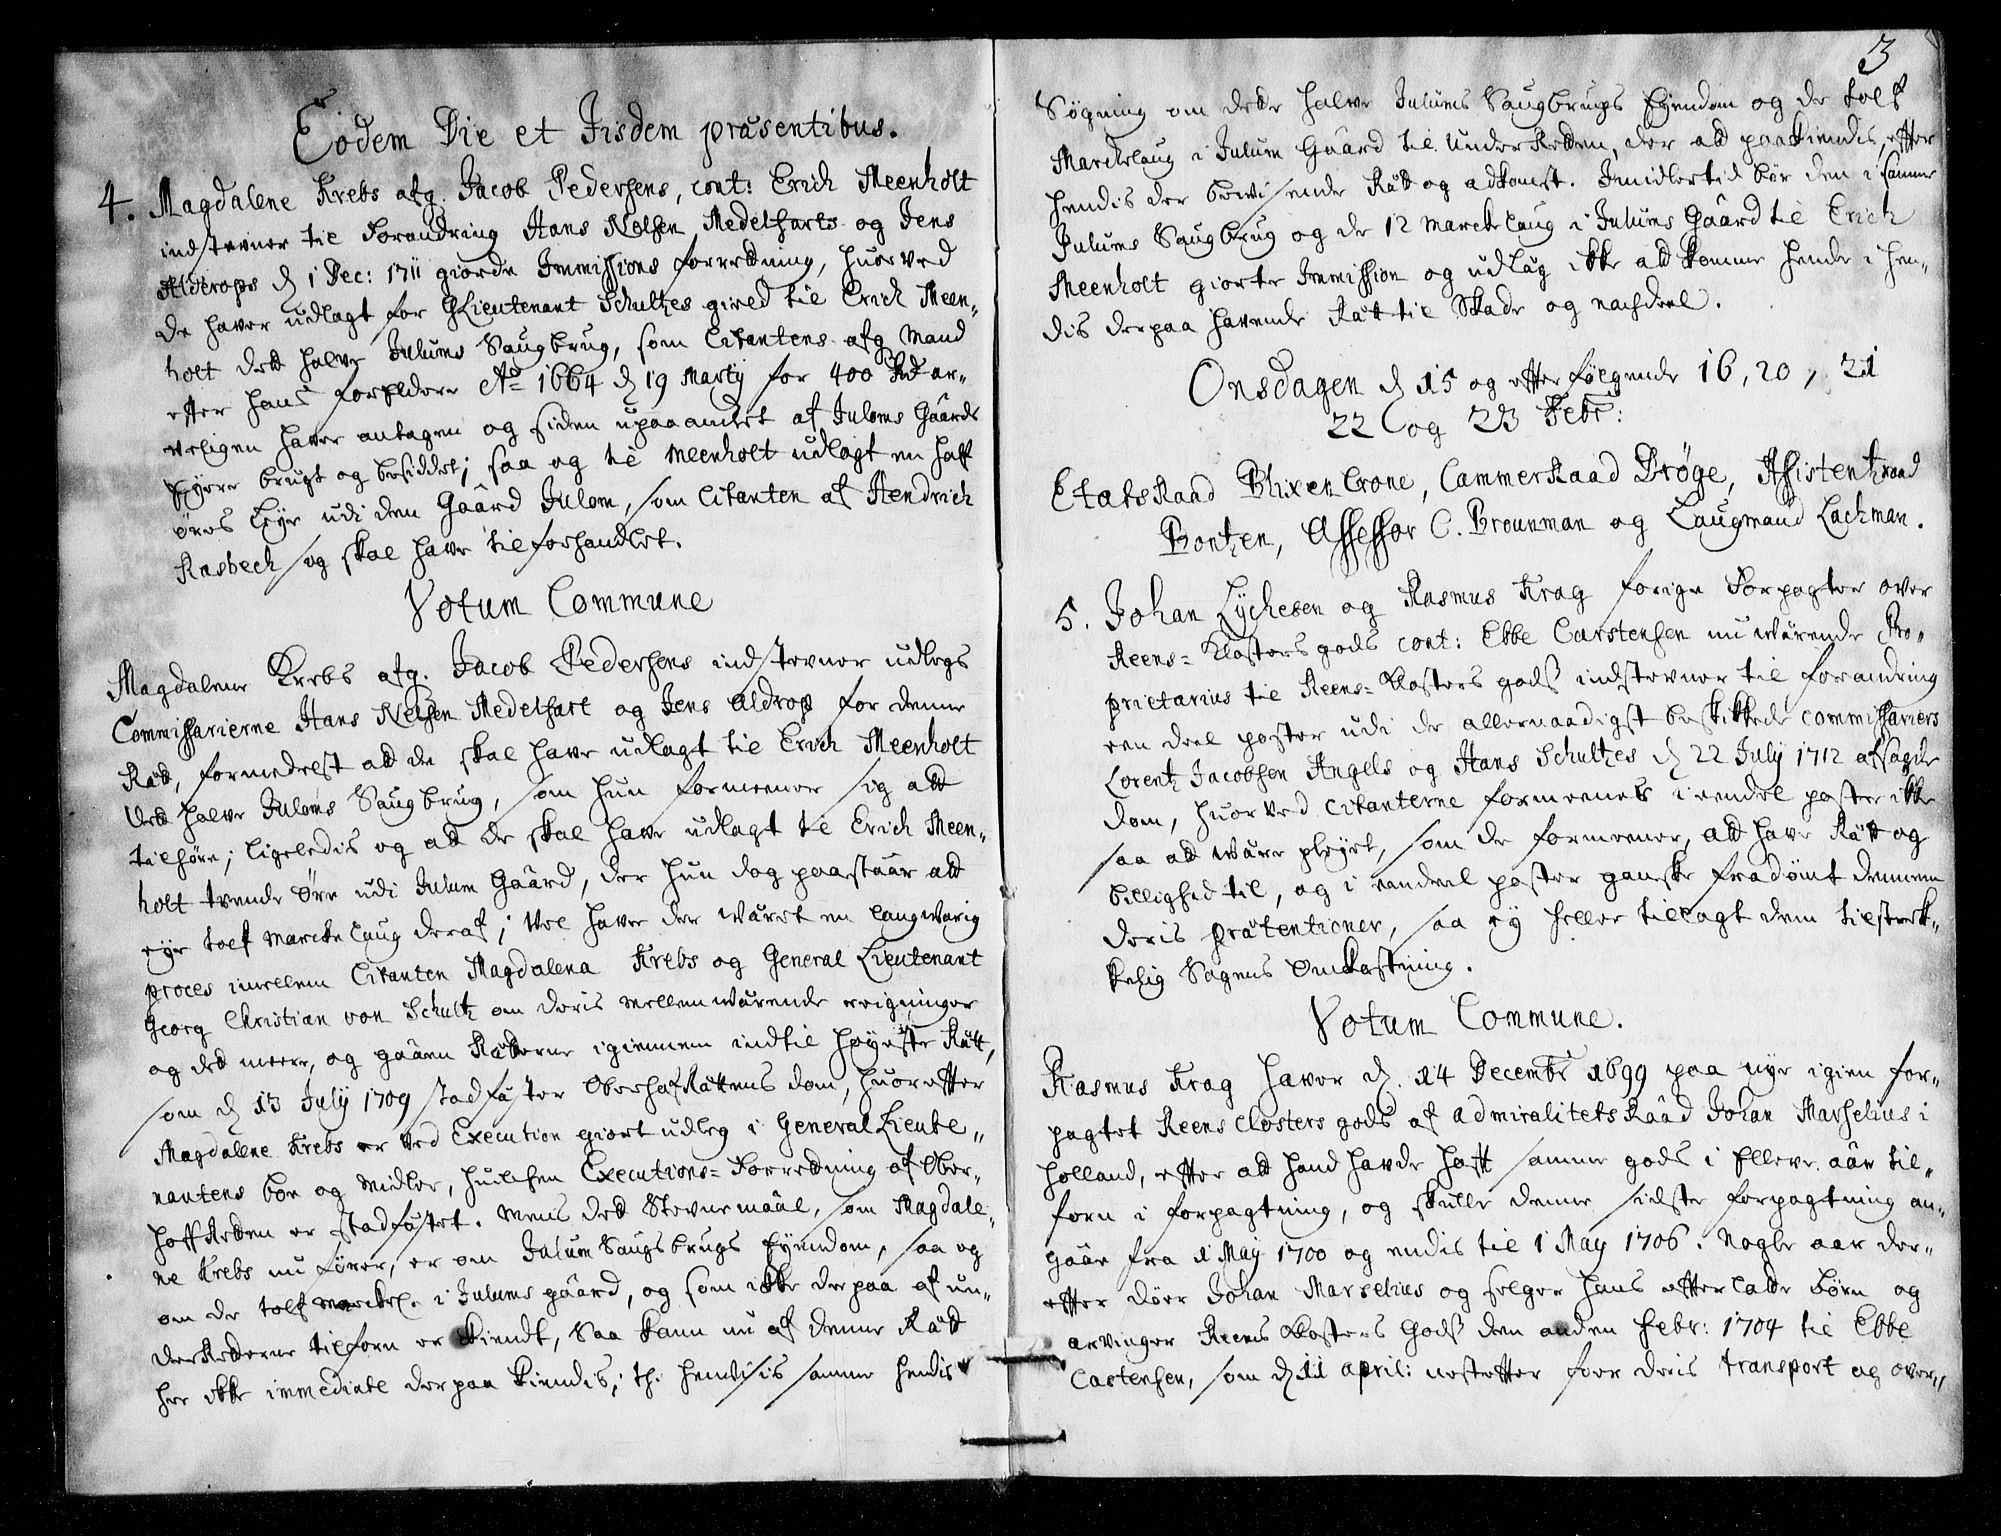 Eodem Die et Iisdem præsentibus.
4. Magdalene Krebs afg. Jacob Pedersens, cont: Erich Meenholt
indstevner til Forandring Hans Nelsen Medelfarts og Jens
Alderops d 1 Dec: 1711 giorde Immissions forretning, huorved
de haver udlagt for GLieutenant Schultzes gield til Erich Meen-
holt det halve Julums Saugbrug, som Citantens afg Mand
efter hans Forældere Ao 1664 d 19 Martij for 400 Rd ar-
veligen haver antagen og siden upaaanket af Julums Gaards
Eyere brugt og besiddet; saa og til Meenholt udlagt en half
øres Leye udi den Gaard Julom, som Citanten af Hendrich
Rasbech og skal have tilforhandlet.
Votum Commune
Magdalene Krebs afg. Jacob Pedersens indstevner udlegs
Commissarierne Hans Nelsen Medelfart og Jens Aldrop for denne
Ræt, formedelst at de skal have udlagt til Erich Meenholt
det halve Juloms Saugbrug, som hun formeener sig at
tilhøre; ligeledis og at de skal have udlagt til Erich Meen-
holt tvende øre udi Julum Gaard, der hun dog paastaar at
eye tolf marcke laug deraf; Vel haver der været en langvarig
proces imellem Citanten Magdalena Krebs og General Lieutenant
Georg Christian von Schultz om deris mellemværende
og det meere, og gaaen Rætterne igiennem indtil Høyeste Ræt,
som d 13 July 1709 stadfæster OberhofRættens dom, huorefter
Magdalene Krebs er ved Execution giort udleg i General Lieute-
nantens boe og midler, huilchen Executions-Forretning af Ober-
hoffRetten er stadfæstet. Mens det Stevnemaal, som Magdale-
ne Krebs nu fører, er om Julum Saugbrugs Eyendom, saa og
om de tolf marckel. i Julums gaard, og som ikke derpaa af un-
derRetterne tilforn er kiendt, saa kand nu af denne Rætt
her ikke immediate derpaa kiendis; thi henvisis samme hendis
3
Søgning om dette halve Julums Saugbrugs Eyendom og de tolf
Marckelaug i Julum Gaard til UnderRetten, der at paakiendis, efter
hendis der bevisende Ræt og adkomst. Imidlertid bør den i samme
Julums Saugbrug og de 12 marcke laug i Julums Gaard til Erich
Meenholt giorte Immission og udlæg ikke at komme hende i hen-
dis derpaa havende Ræt til Skade og nachdeel.
Onsdagen d 15 og efterfølgende 16, 20, 21
22 og 23 Febr:
EtatsRaad Blixencrone, CammerRaad Drøge, Assistentzraad
Bontzen, Assessor C. Brounman og Laugmand Lachman.
5. Johan Lychesen og Rasmus Krag forige Forpagter over
Reens-Klosters gods cont: Ebbe Carstensen nu værende Pro-
prietarius til Reens-Klosters gods indstevner til forandring
een deel poster udi de allernaadigst beskikkede commissariers
Lorentz Jacobsen Angels og Hans Schultzes d 22 July 1712 afsagde
dom, huorved Citanterne formeenes i eendel poster ikke
saa at være pleyet, som de formeener, at have Ræt og
billighed til, og i eendeel poster ganske fradømt dennem
deris prætentioner, saa ey heller tillagt dem tilstræk-
kelig Sagens Omkostning.
Votum Commune.
Rasmus Krag haver d. 14 Decembr 1699 paa nye igien for-
pagtet Reens Closters gods af admiralitetsRaad Johan Marselius i
Holland, efter at hand havde haft samme gods i Elleve aar til-
forn i forpagtning, og skulle denne sidste forpagtning an-
gaae fra 1 May 1700 og endis til 1 May 1706. Nogle aar der-
efter døer Johan Marselius og selger hans efterladte børn og
arvinger Reens Klosters Gods den anden Febr: 1704 til Ebbe
Castensen, som d 11 april: nestefter faar deris transport og over-